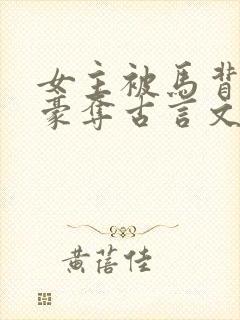 女主被馬背
豪奪古言文
黄蓓佳